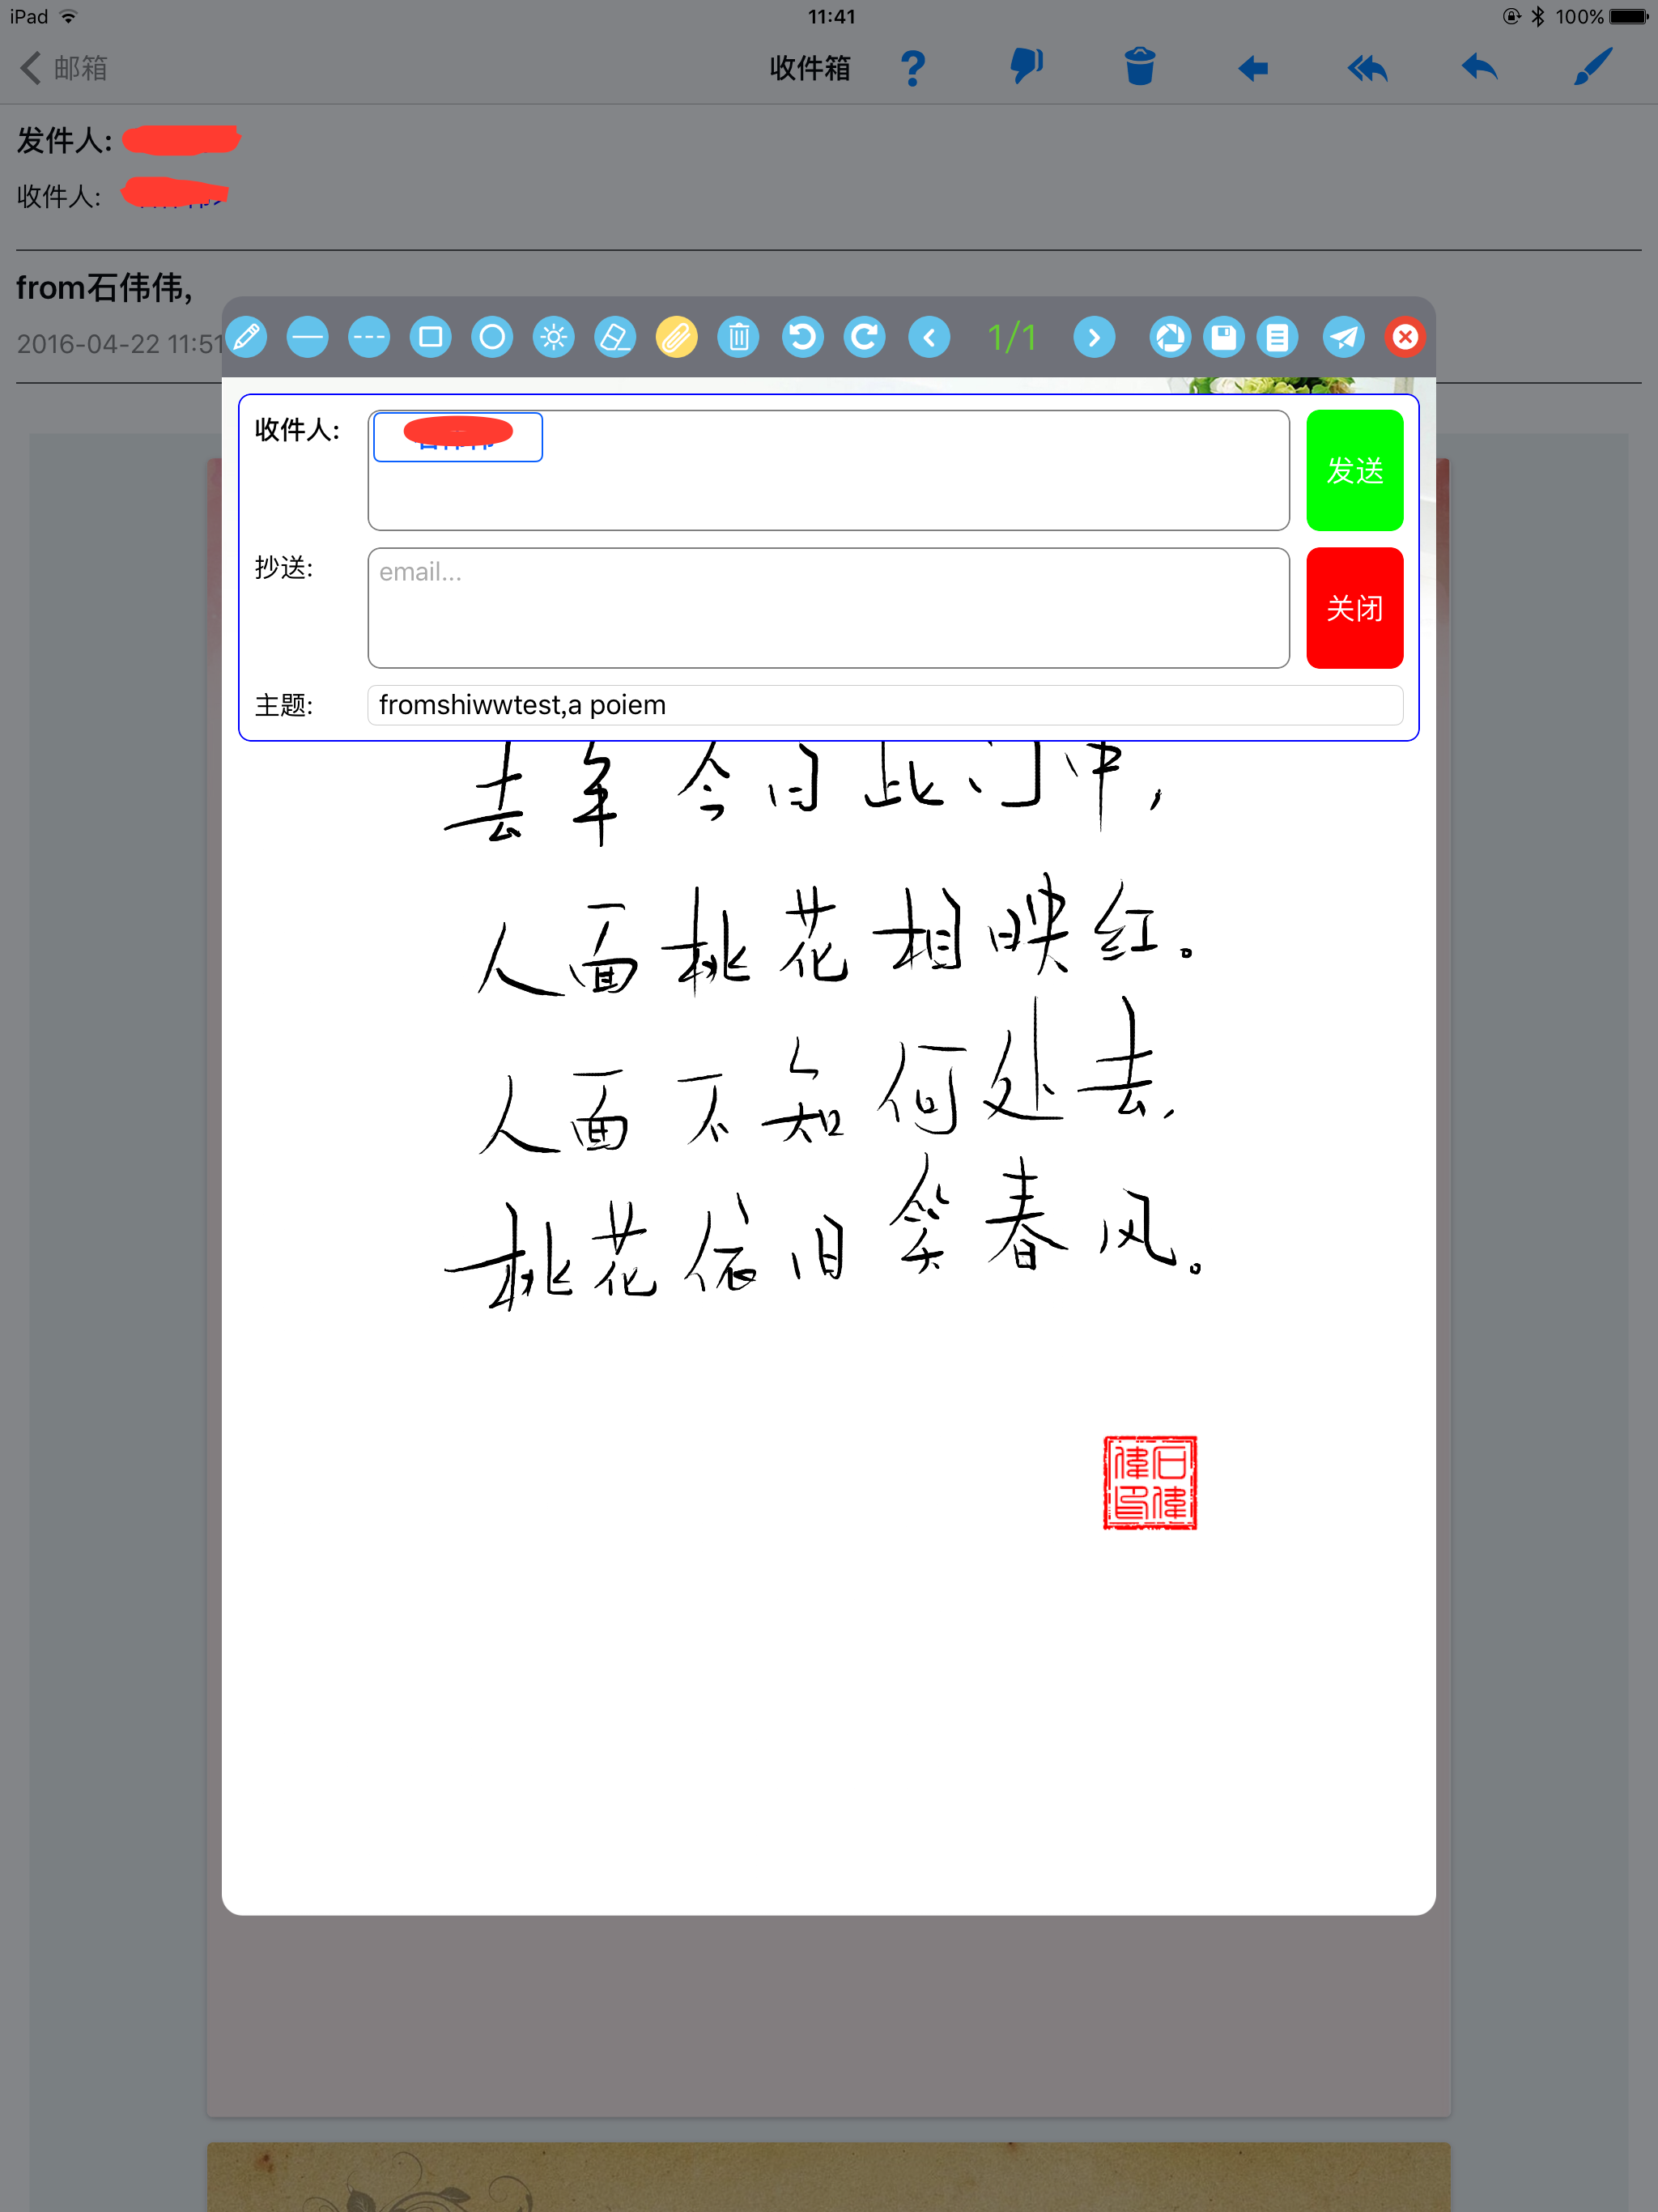 iPad 11:41 100%
邮箱 收件箱
发件人:
收件人:
from石伟伟,
2016-04-22 11:51
1/1
收件人: 发送
抄送: email... 关闭
主题: fromshiwwtest,a poiem
去年今日此门中，
人面桃花相映红。
人面不知何处去，
桃花依旧笑春风。
石偉偉印